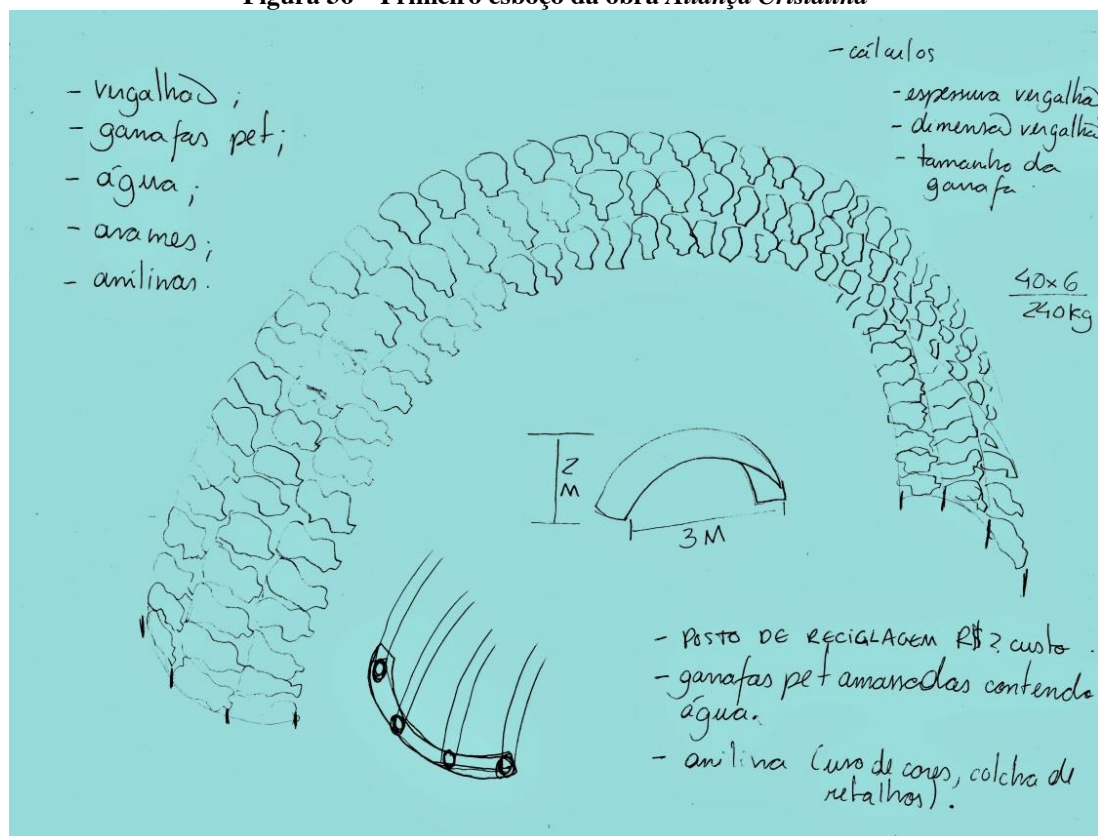 Figura 36 – Primeiro esboço da obra Aliança Cristalina
- vergalhão;
- garrafas pet;
- água;
- arames;
- anilinas.
- cálculos
- espessura vergalhão
- dimensão vergalhão
- tamanho da
garrafa.
40x6
240kg
2
M
3M
- POSTO DE RECICLAGEM R$? custo.
- garrafas pet amassadas contendo
água.
- anilina (uso de cores, colcha de
retalhos).